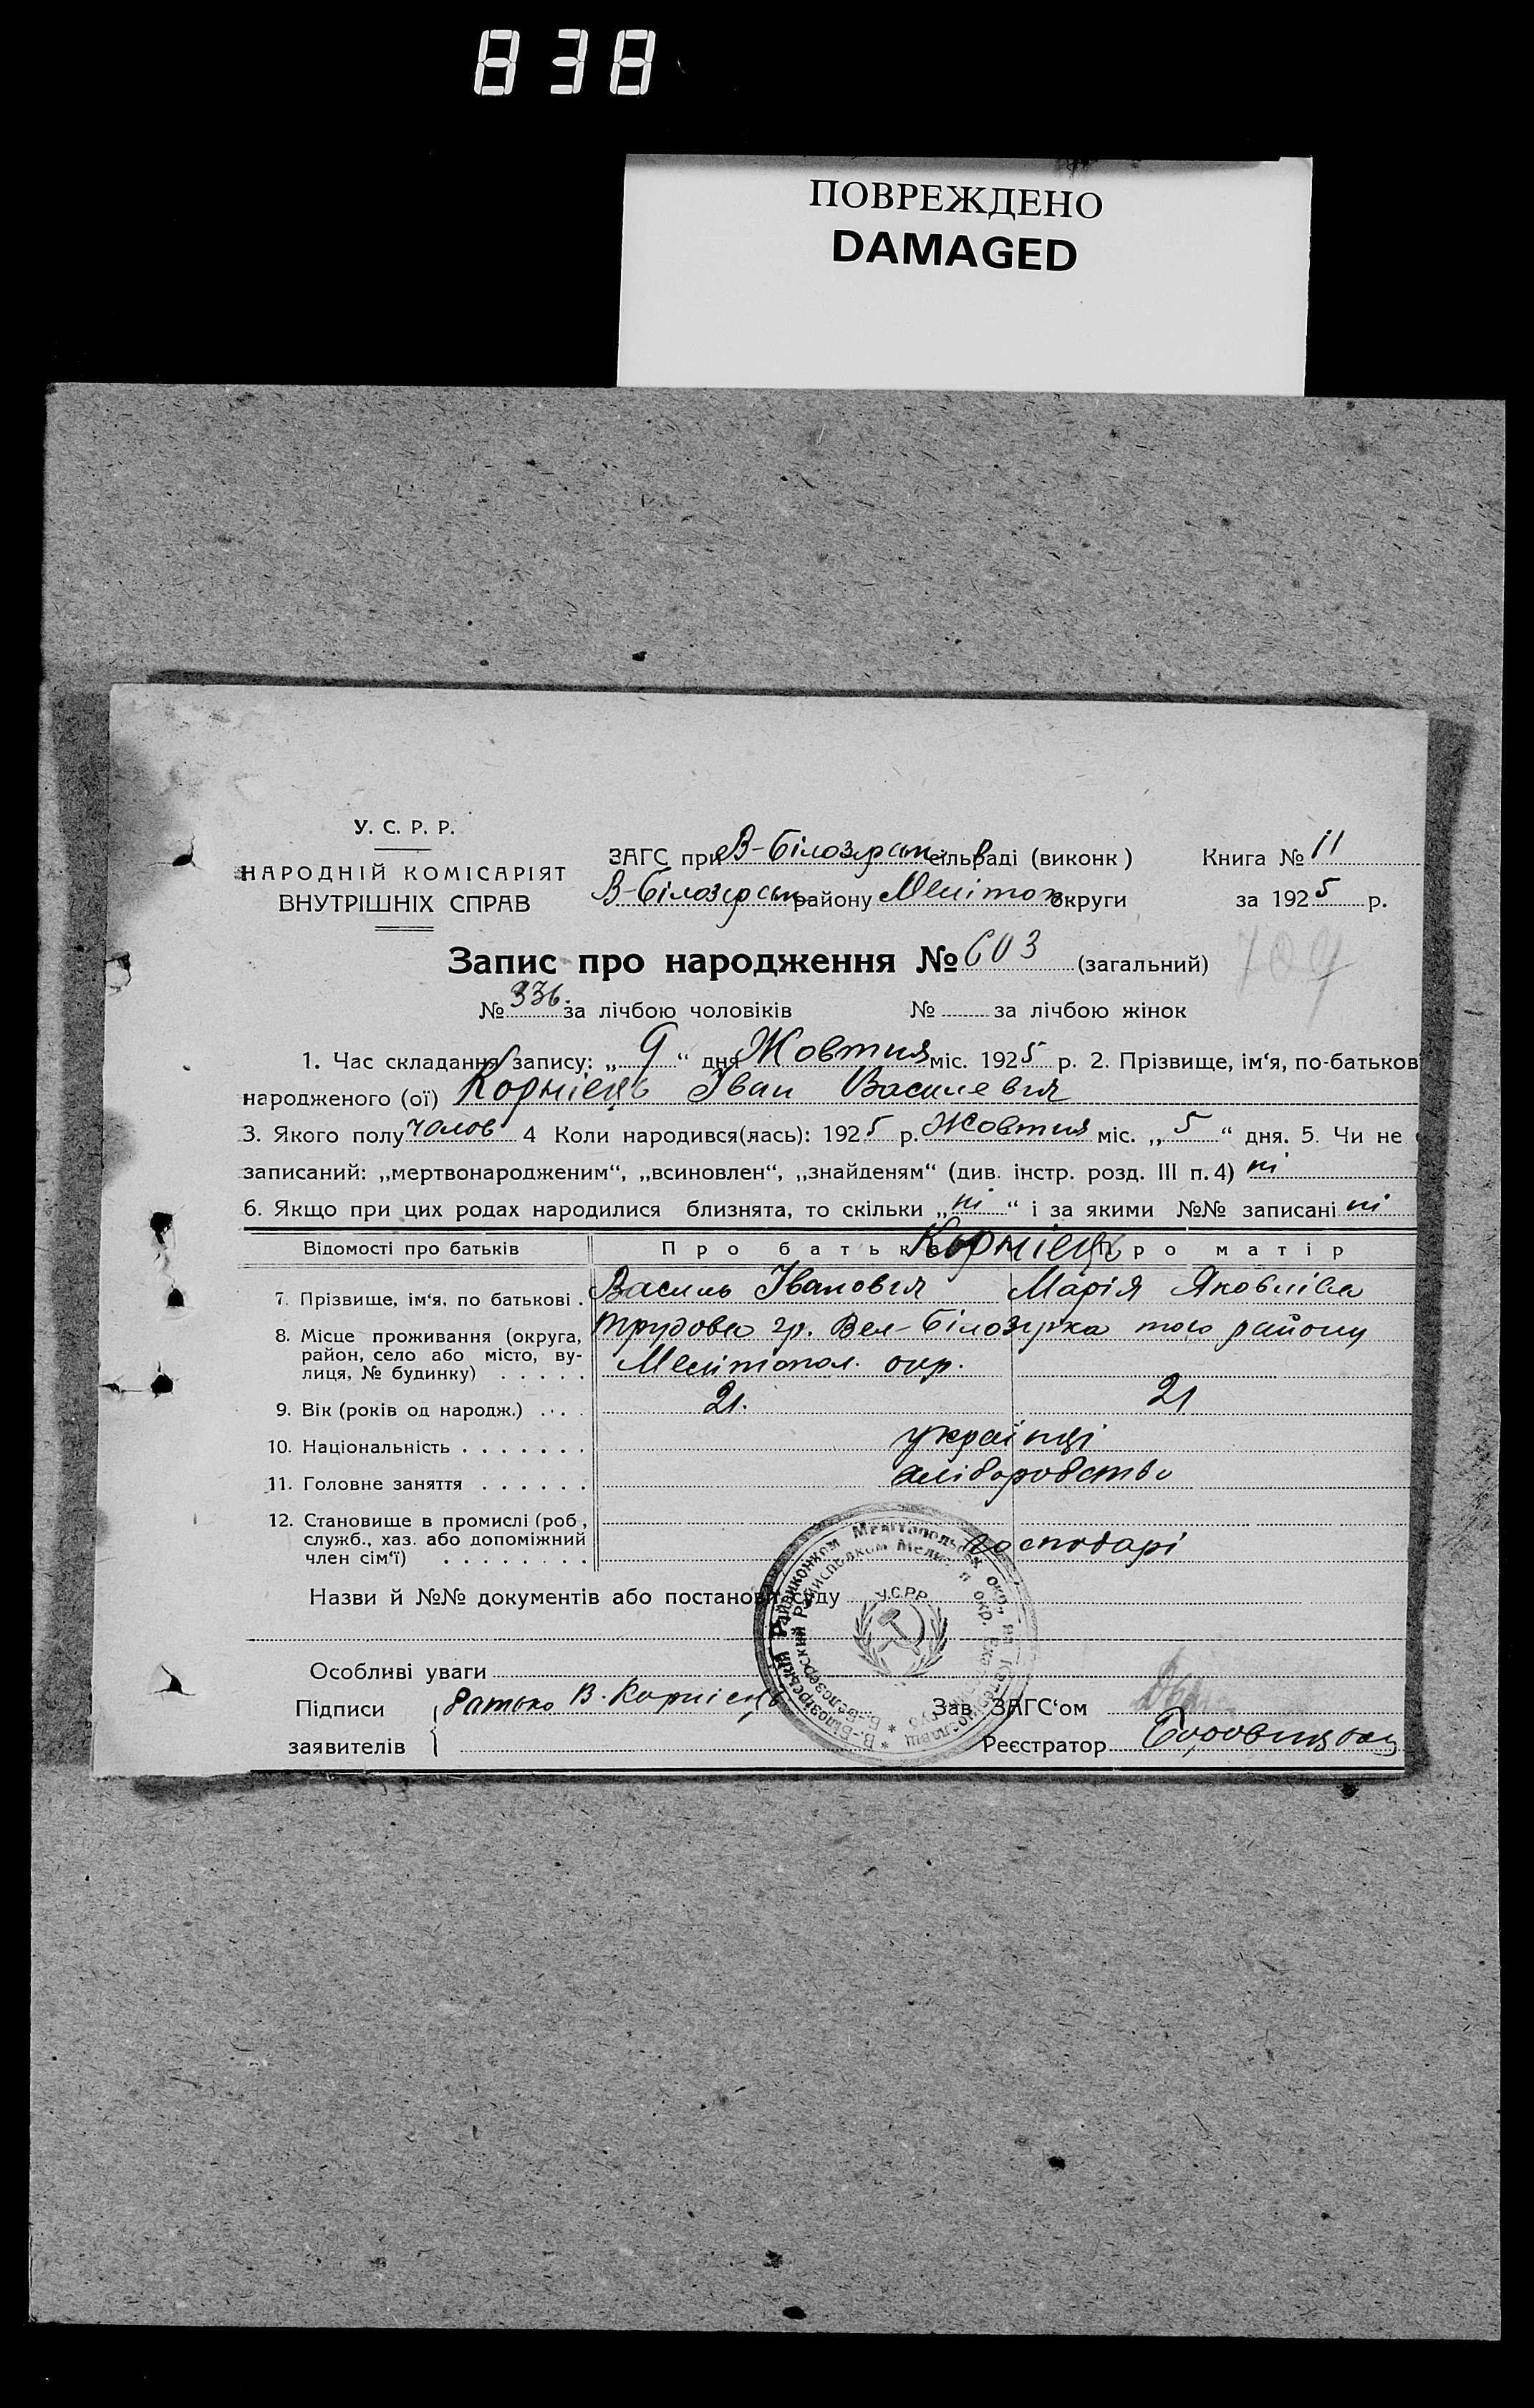 838
ПОВРЕЖДЕНО
DAMAGED
У. С. Р. Р.
НАРОДНІЙ КОМІСАРІЯТ
ВНУТРІШНІХ СПРАВ
ЗАГС при В-Білозерськ сільраді (виконк)
Книга № 11
В-Білозерськ району Мелітоп округи
за 1925 р.
Запис про народження № 603 (загальний)
709
№ 336. за лічбою чоловіків № за лічбою жінок
1. Час складання запису: „ 9 “ дня Жовтня міс. 1925 р. 2. Прізвище, ім‘я, по-батьков
народженого (ої) Корнієць Іван Василевич
3. Якого полу чолов 4 Коли народився(лась): 1925 р. Жовтня міс. „ 5 “ дня. 5. Чи не
записаний: „мертвонародженим“, „всиновлен“, „знайденям“ (див. інстр. розд. III п. 4) ні
6. Якщо при цих родах народилися близнята, то скільки „ ні “ і за якими №№ записані ні
Відомості про батьків Про батька Про матір
Корнієць
7. Прізвище, ім‘я, по батькові . Василь Іванович Марія Яковлівна
8. Місце проживання (округа, район, село або місто, вулиця, № будинку) . . . . .
Трудова гр. Вел-Білозерка того району
Мелітопол. окр.
9. Вік (років од народж.) . . . 21. 21
10. Національність . . . . . . . українці
11. Головне заняття . . . . . . хліборобство
12. Становище в промислі (роб., служб., хаз. або допоміжний член сім‘ї) . . . . . . . .
господарі
Назви й №№ документів або постанови суду
У.С.Р.Р.
Особливі уваги
Підписи
заявителів
батько В. Корнієць
Зав. ЗАГС‘ом
Реєстратор